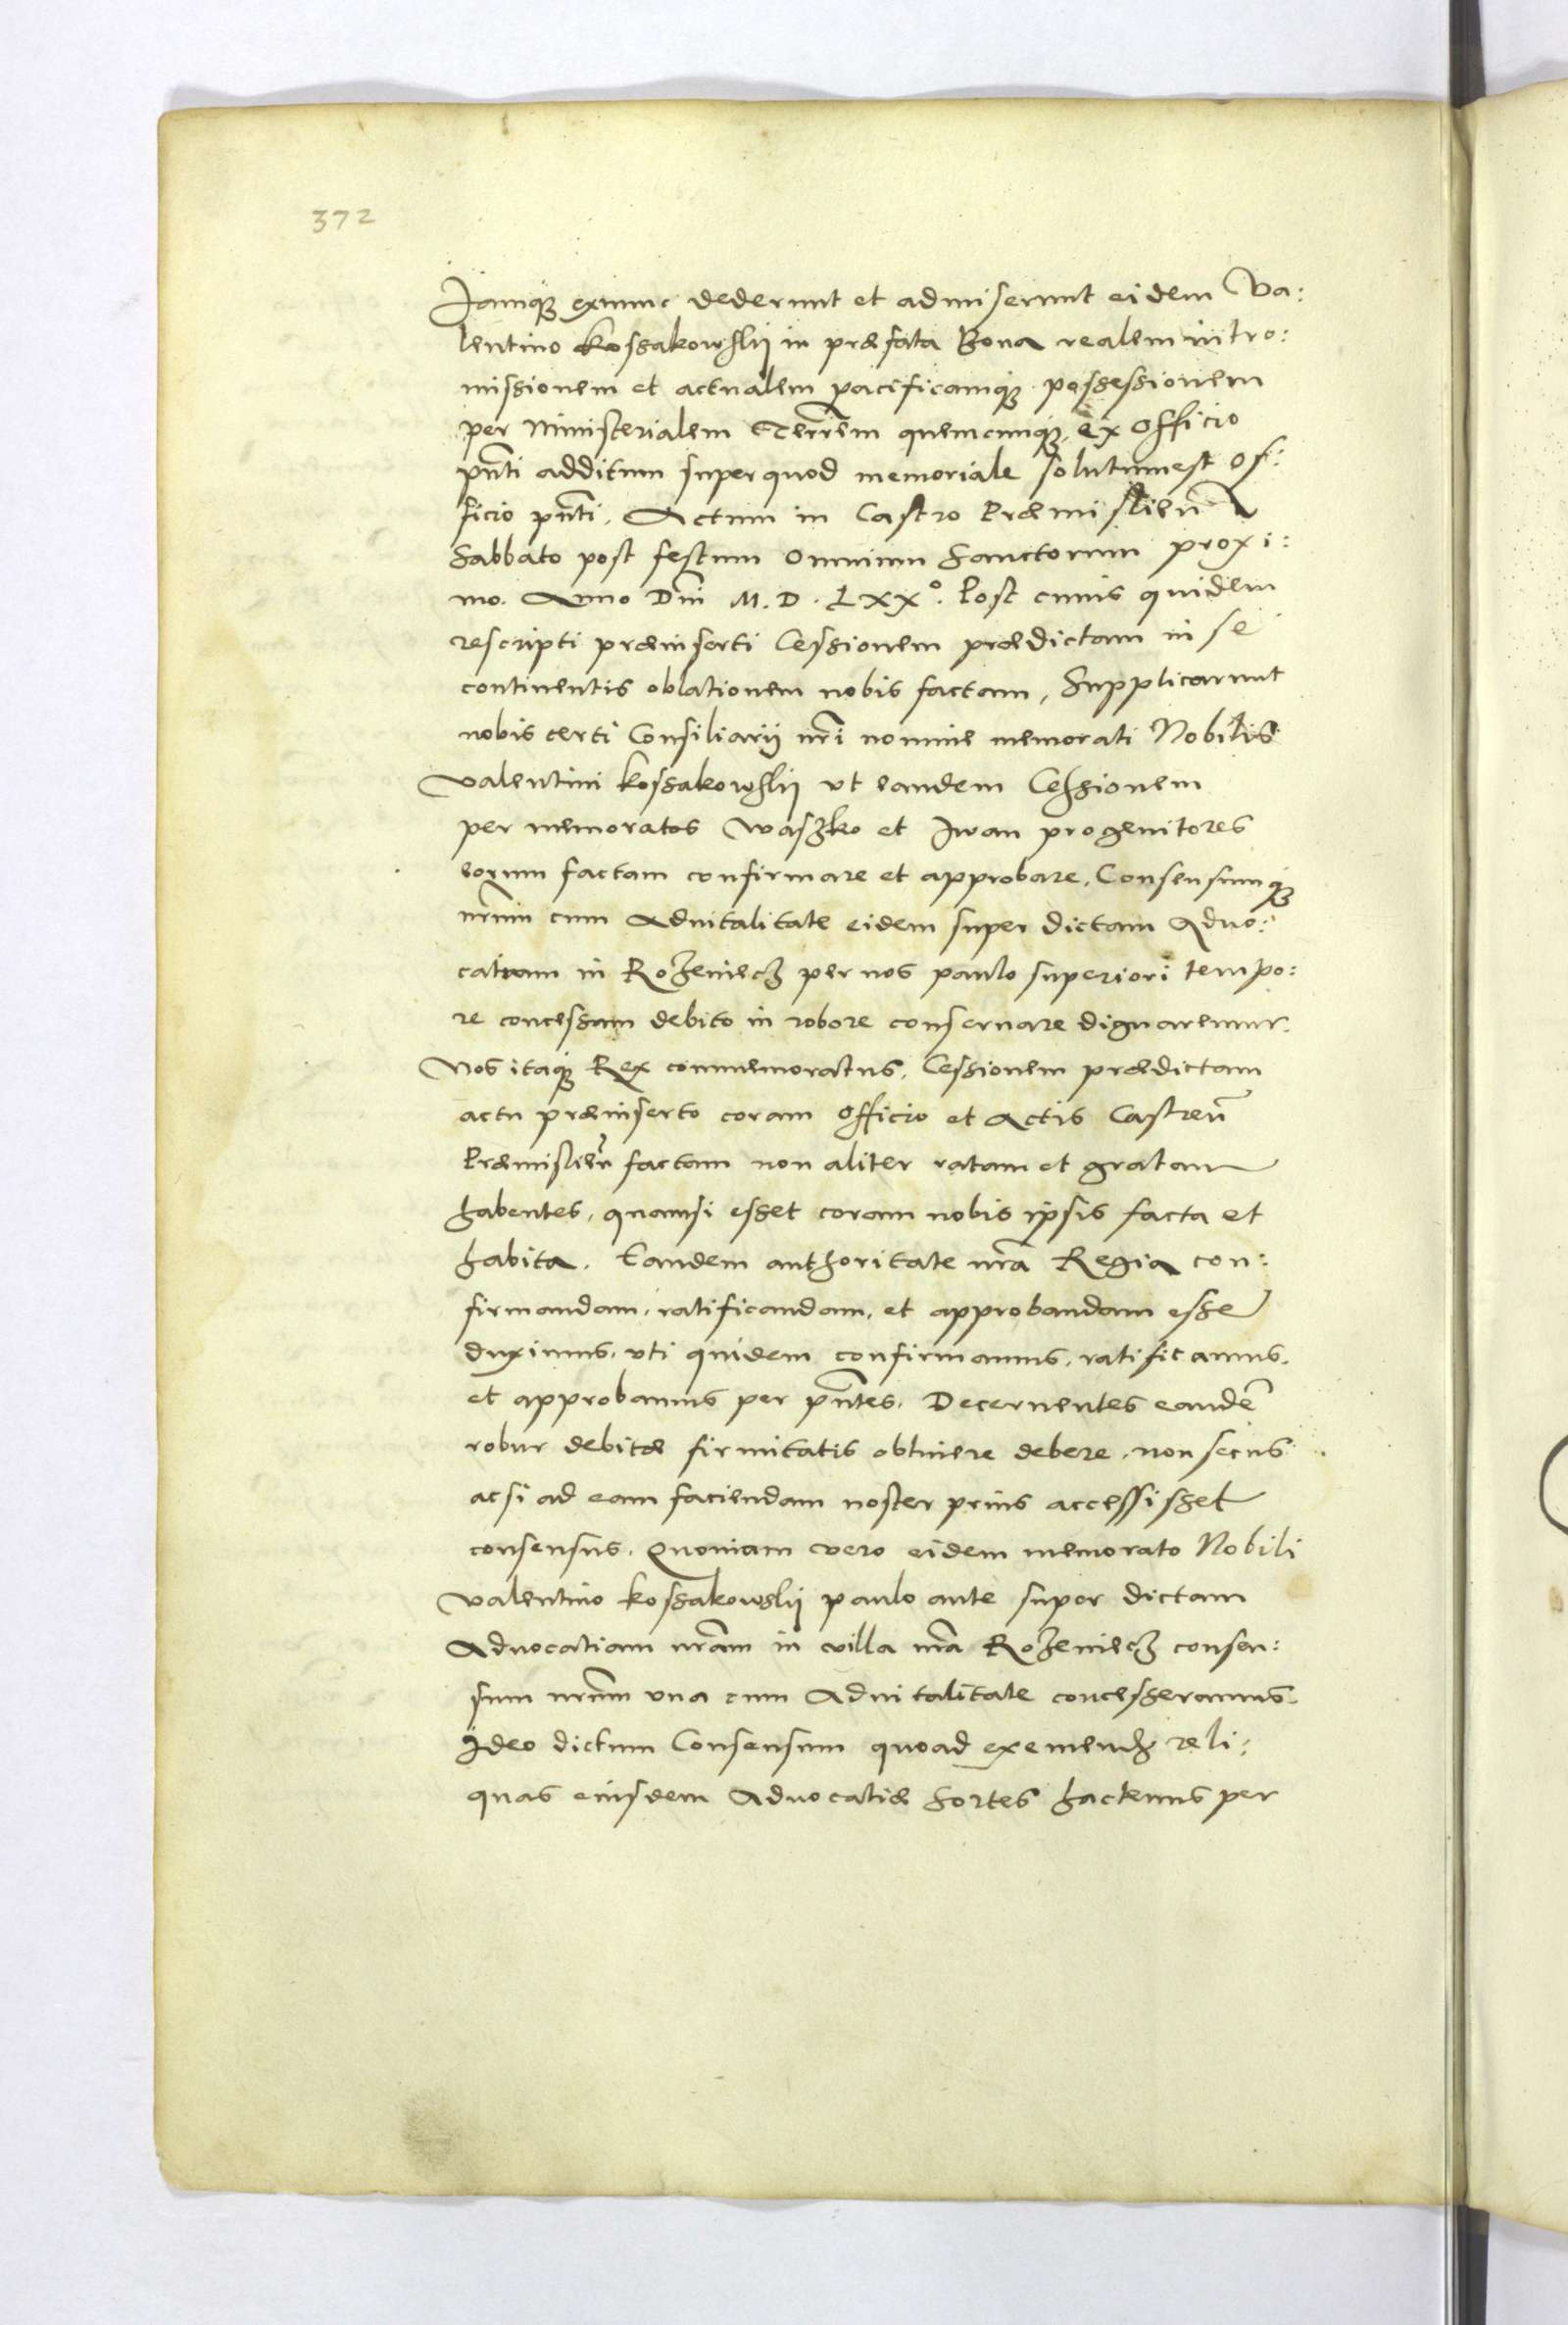 372
Jamq₃ exnunc dederunt et admiserunt eidem Va:
lentino Kossakowskij in præfata Bona realem intro:
missionem et actualem pacificamq₃ possessionem
per Ministerialem Terrēm quemcunq₃ ex Officio
pn̄ti additum super quod memoriale solutum est Of:
ficio pn̄ti. Actum in Castro Præmislien̄
Sabbato post festum Omnium Sanctorum proxi:
mo. Anno Dn̄i M. D. LXXº. Post cuius quidem
rescripti præinserti Cessionem prædictam in se
continentis oblationem nobis factam, Supplicarunt
nobis certi Consiliarij nr̄i nomine memorati Nobilis
Valentini Kossakowskij vt eandem Cessionem
per memoratos Waszko et Iwan progenitores
eorum factam confirmare et approbare, Consensumq₃
nr̄um cum Aduitalitate eidem super dictam Aduo:
catiam in Rozeniecz per nos paulo superiori tempo:
re concessum debito in robore conseruare dignaremur.
Nos itaq₃ Rex commemoratus, Cessionem prædictam
actu præinserto coram Officio et Actis Castren̄
Præmislien̄ factam non aliter ratam et gratam
habentes, quamsi esset coram nobis ipsis facta et
habita. Eandem authoritate nr̄a Regia con:
firmandam, ratificandam, et approbandam esse
duximus, vti quidem confirmamus, ratificamus,
et approbamus per pn̄tes. Decernentes eandē
robur debitæ firmitatis obtinere debere, non secus
acsi ad eam faciendam noster prius accessisset
consensus. Quoniam vero eidem memorato Nobili
Valentino Kossakowskij paulo ante super dictam
Aduocatiam nr̄am in villa nr̄a Rozeniecz consen:
sum nr̄um vna cum Aduitalitate concesseramus.
Ideo dictum Consensum quoad exemend₃ reli:
quas eiusdem Aduocatiæ sortes hactenus per